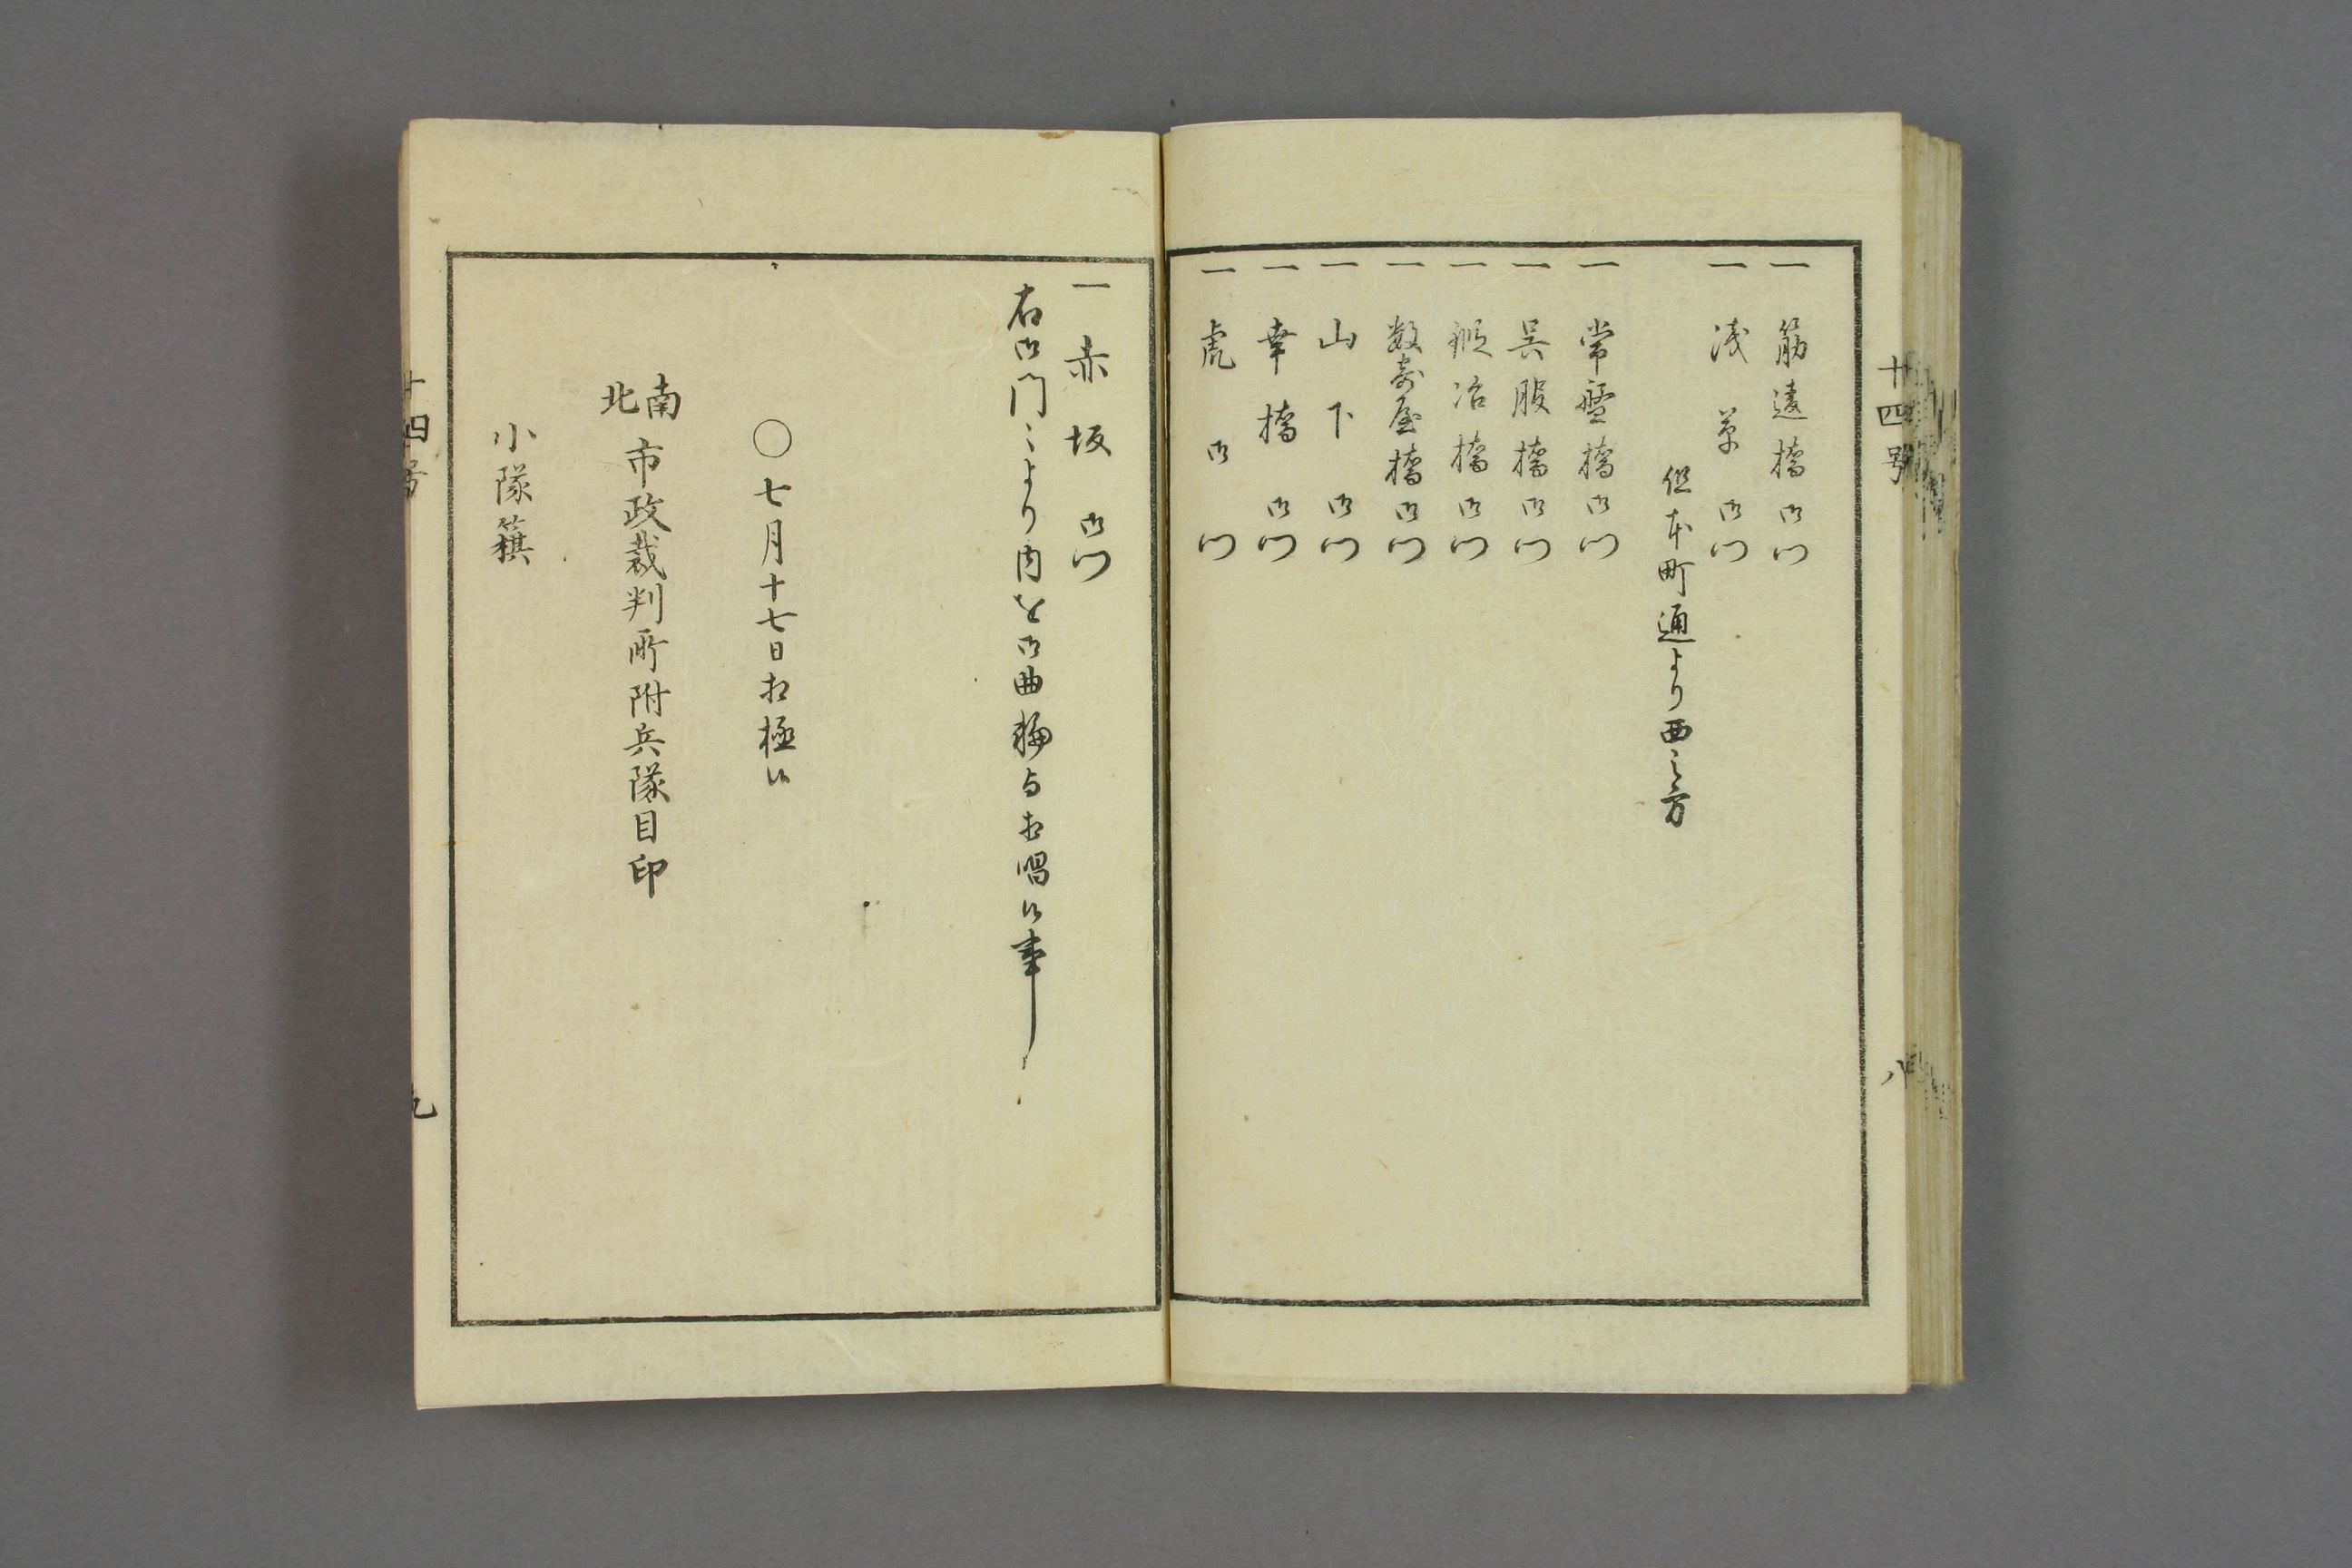 十四号
八
一 筋違橋御門
一 浅草御門
但本町通より西之方
一 常盤橋御門
一 呉服橋御門
一 鍛冶橋御門
一 数寄屋橋御門
一 山下御門
一 幸橋御門
一 虎御門
一 赤坂御門
右御門〻より内を御曲輪与相唱候事
〇七月十七日相極候
南北市政裁判所附兵隊目印
小隊籏
十四号
九